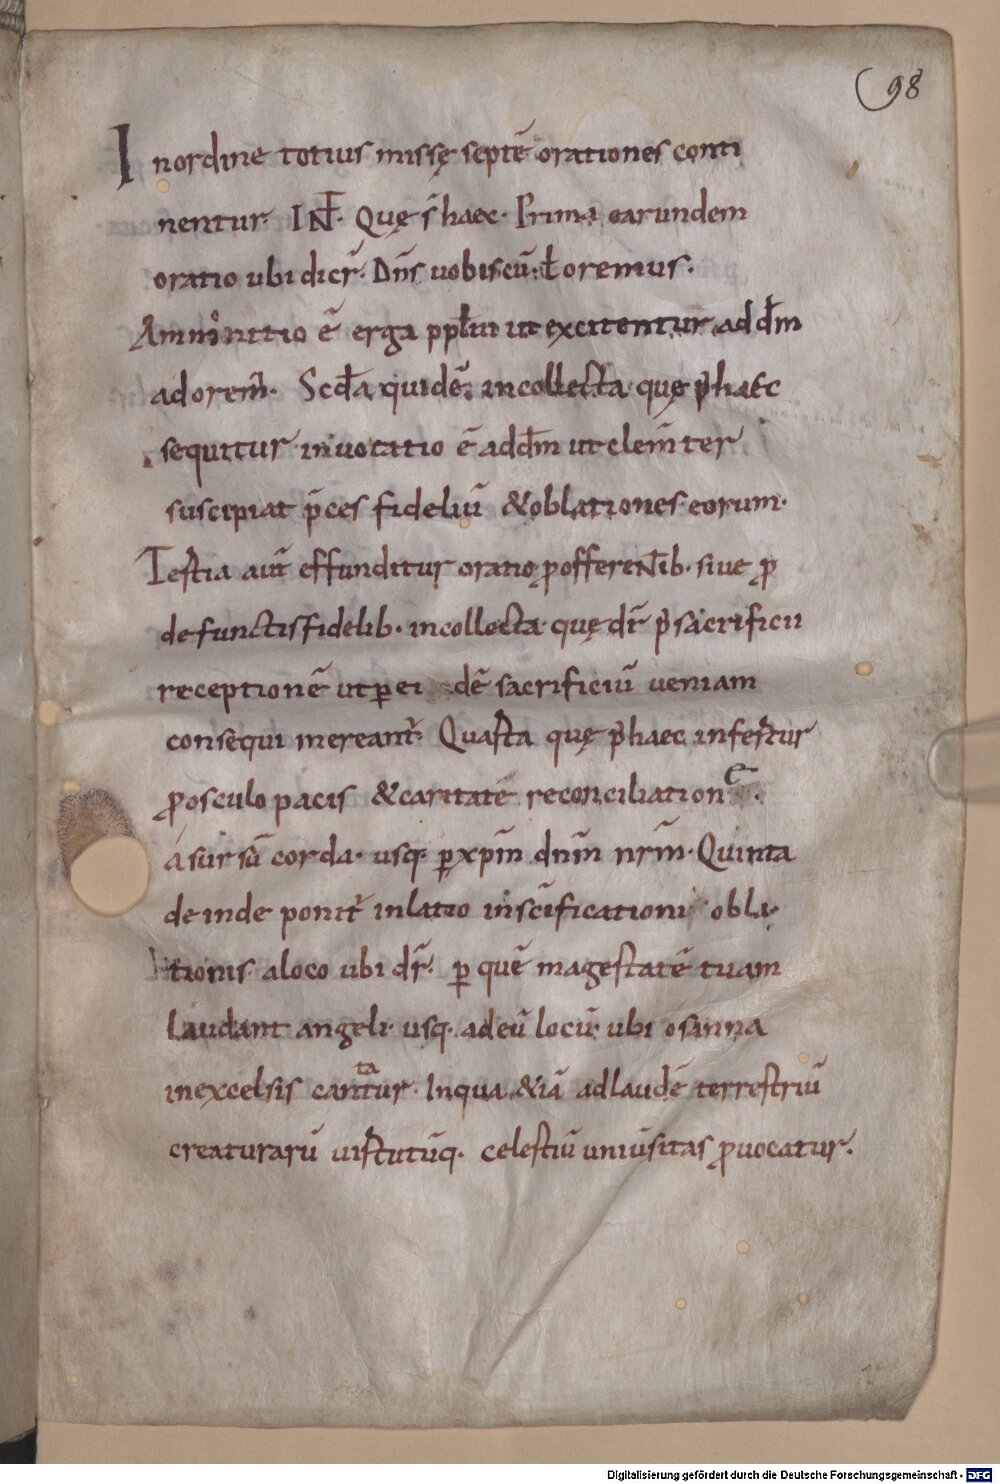 98
In ordine totius missę septē orationes conti
nentur. INT̄. Quę s̄ haec. Prima earundem
oratio ubi dicr̄. Dn̄s uobiscū. ł oremus.
Ammonitio ē erga ppłm ut excitentur ad dm̄
adorem̄. Scda quidē. in collecta quę p̄ haec
sequitur inuocatio ē ad dm̄ ut clem̄ter
suscipiat p̄ces fideliū &oblationes eorum.
Tertia aut̄ effunditur oratio ꝓ offerentib. siue ꝓ
defunctis fidelib. in collecta quę dr̄ p̄ sacrificii
receptionē ut ꝑ ei dē sacrificiū ueniam
consequi mereant̄. Quarta quę p̄ haec infertur
ꝓ osculo pacis &caritate reconciliation
a sursū corda. usq. ꝑ xp̄m dn̄m nr̄m. Quinta
deinde ponit̄ inlatio in sc̄ificationi obla
tionis a loco ubi dr̄. ꝑ quē magestatē tuam
laudant angeli. usq. ad eū locū. ubi osanna
in excelsis cantatur. In qua &iā ad laudē terrestriū
creaturarū uirtutūq. celestiū uniūsitas ꝓuocatur.
Digitalisierung gefördert durch die Deutsche Forschungsgemeinschaft - DFG